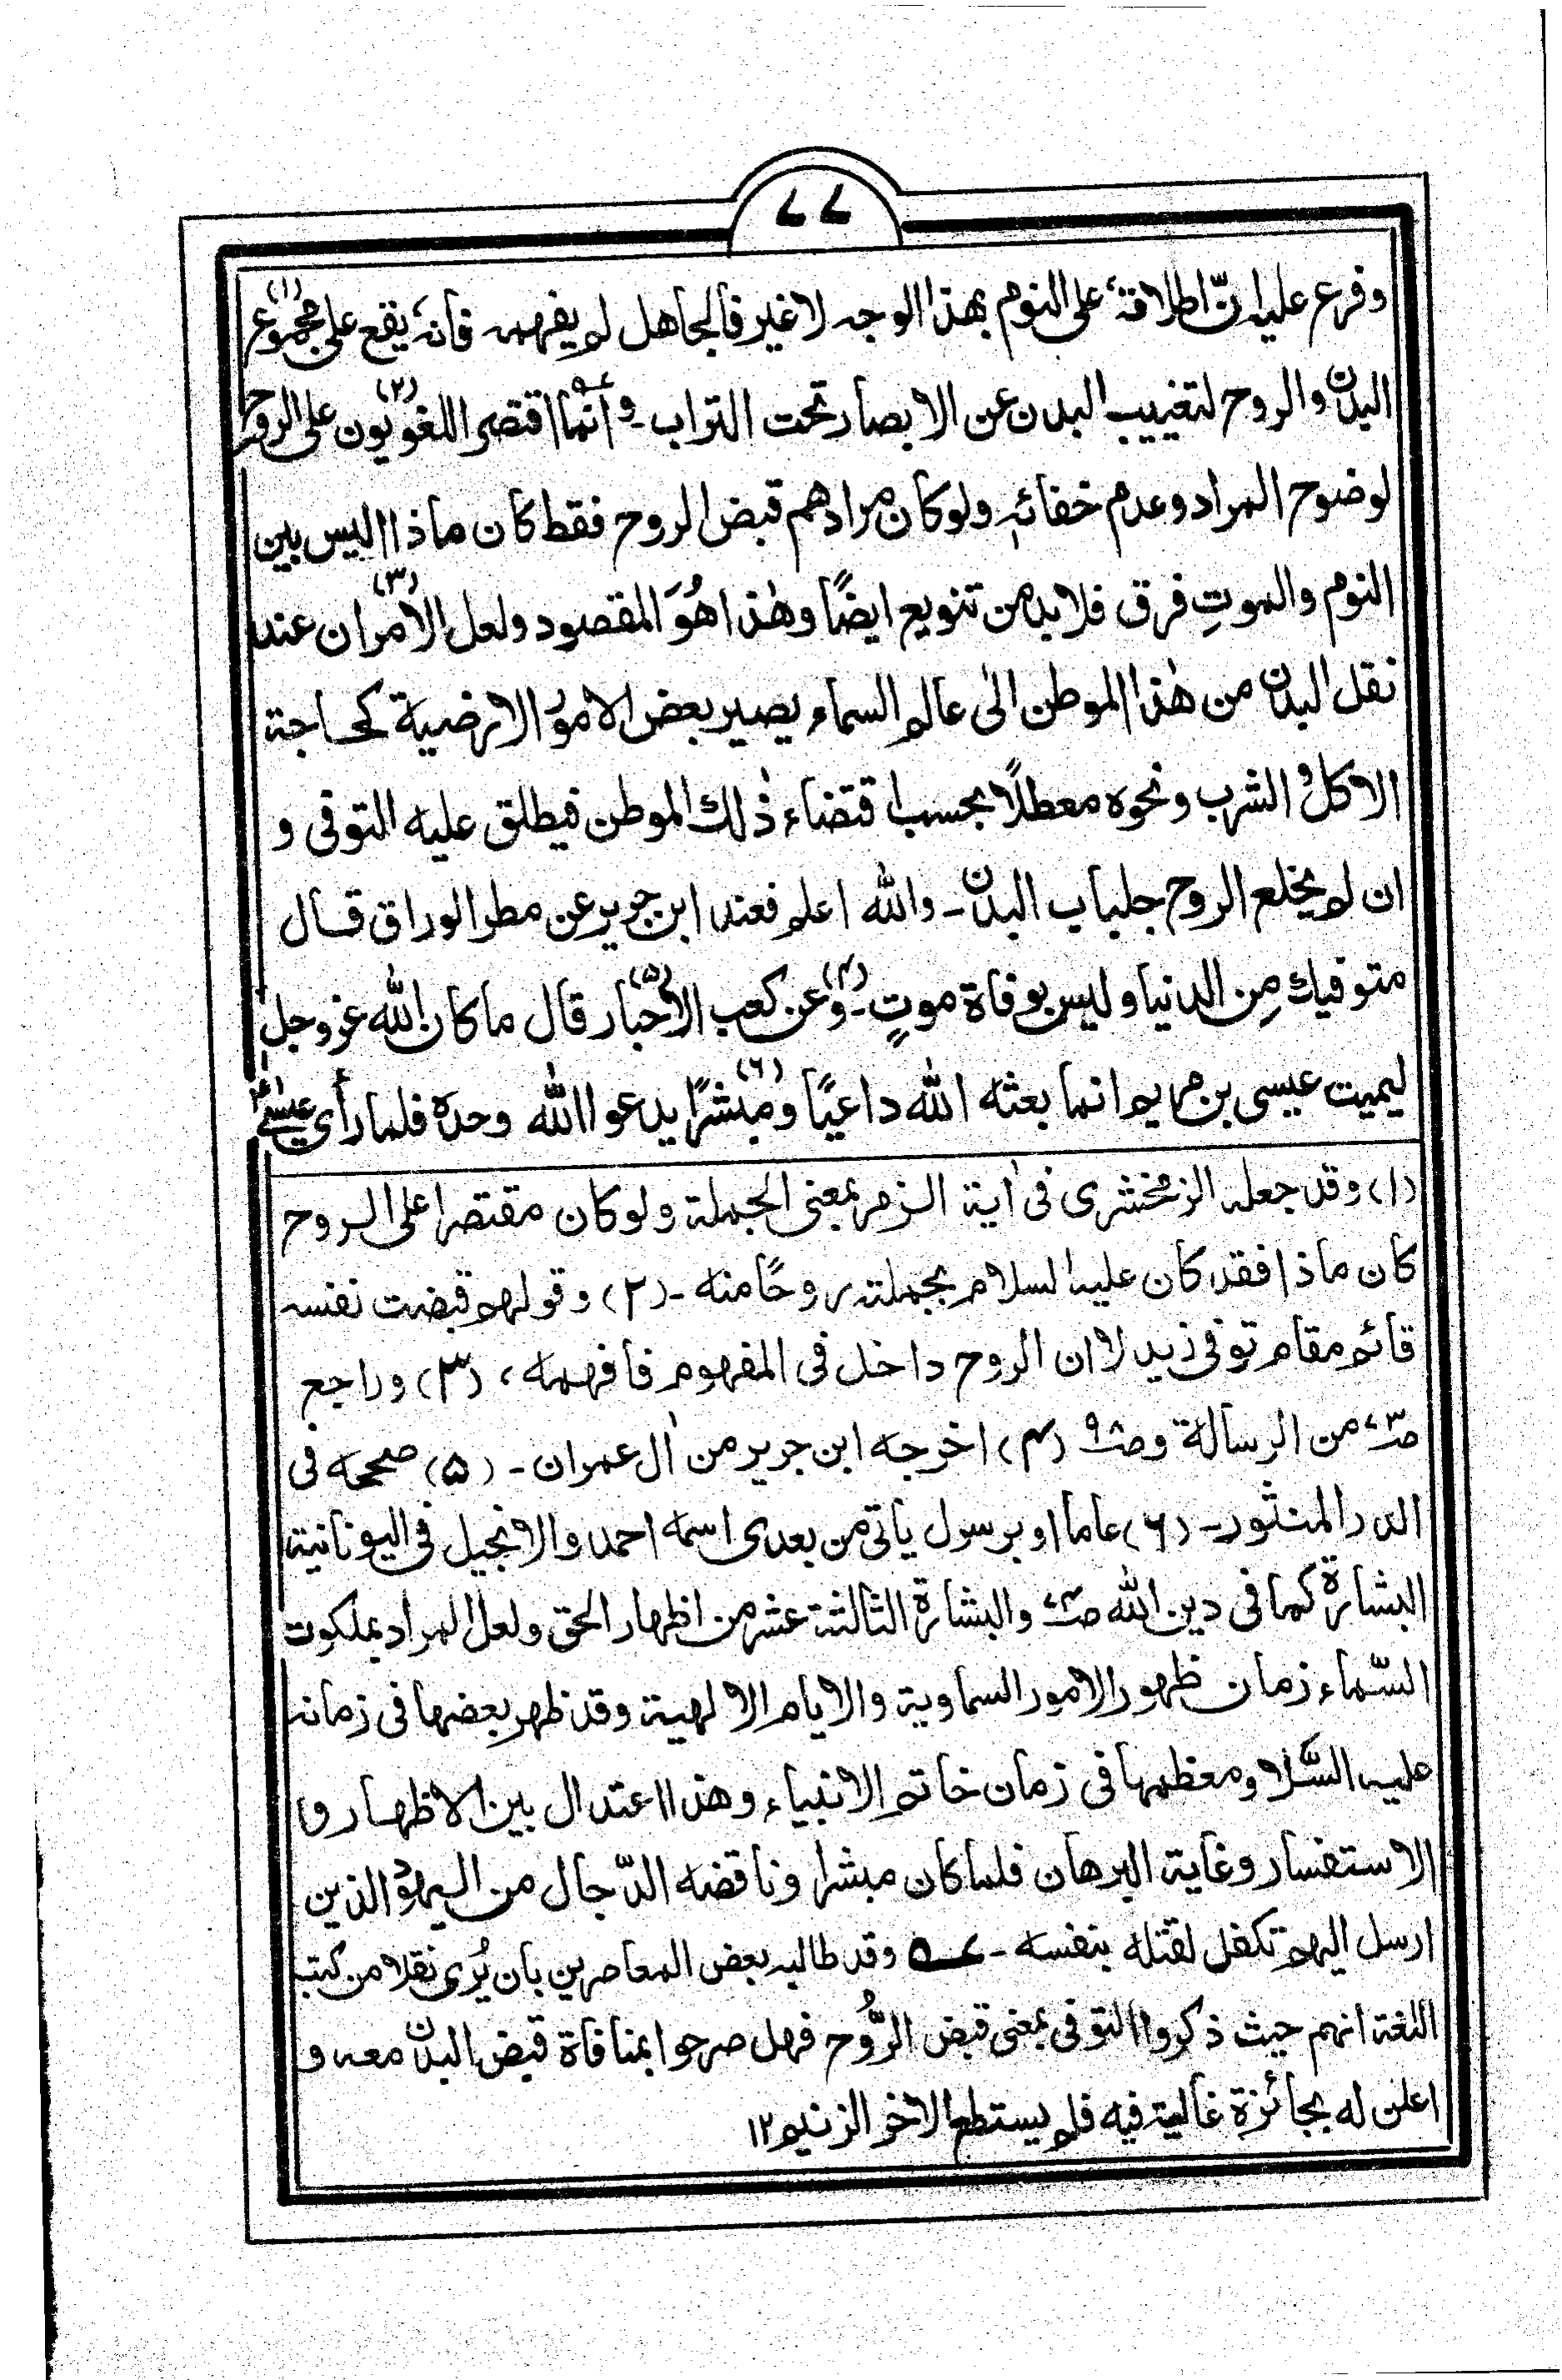 ٧٧
وفرع عليه انّ اطلاقهٗ على النوم بهذا الوجه لا غير فالجاهل لم يفهمه فانهٗ يقع على مجموع(١)
البدن والروح لتغييب البدن عن الابصار تحت التراب۔ وانما اقتصر اللغويون(٢) على الروح
لوضوح المراد وعدم خفائہٖ ولو كان مرادهم قبض الروح فقط كان ماذا اليس بين
النوم والموتِ فرق فلا بد من تنويع ايضًا وهٰذا هُوَ المقصود ولعل الامران(٣) عند
نقل البدن من هٰذا الموطن الىٰ عالم السماء يصير بعض الامور الارضية كحاجة
الاكل والشرب ونحوه معطلًا بحسب اقتضاء ذٰلك الموطن فيطلق عليه التوفى و
ان لم يخلع الروح جلباب البدن۔ والله اعلم فعند ابن جرير عن مطر الوراق قال
متوفيك مِن الدنيا وليس بوفاة موتٍ۔(٤) وعن كعب الاحبار(٥) قال ما كان الله عزوجل
ليميت عيسى بن مريم انما بعثه الله داعيًا ومبشرًا(٦) يدعو الله وحده فلما رأى عيسىٰ
(١) وقد جعله الزمخشرى فى اٰية الزمر بمعنى الجملة ولو كان مقتصرا على الروح
كان ماذا فقد كان عليه السلام بجملته روحًا منه ۔(٢) وقولهم قبضت نفسه
قائم مقام توفى زيد لا ان الروح داخل فى المفهوم فافهمه ، (٣) وراجع
من الرسالة و (٤) اخرجه ابن جرير من اٰل عمران ۔ (٥) صححه فى
الدر المنثور۔ (٦) عاما او برسول ياتى من بعدى اسمه احمد والانجيل فى اليونانية
البشارة كما فى دين الله والبشارة الثالثة عشر من اظهار الحق ولعل المراد بملكوت
السّماء زمان ظهور الامور السماوية والايام الالهية وقد ظهر بعضها فى زمانه
عليه السّلام ومعظمها فى زمان خاتم الانبياء وهذا اعتدال بين الاظهار و
الاستفسار وغاية البرهان فلما كان مبشرا وناقضه الدّجال من اليهود الذين
ارسل اليهم تكفل لقتله بنفسه ۔ وقد طالبه بعض المعاصرين بان يُرى نقلا من كتب
اللغة انهم حيث ذكروا التوفى بمعنى قبض الرُّوح فهل صرحوا بمنافاة قبض البدن معه و
اعلن له بجائزة غالية فيه فلم يستطع الاخر الزنيم ١٢